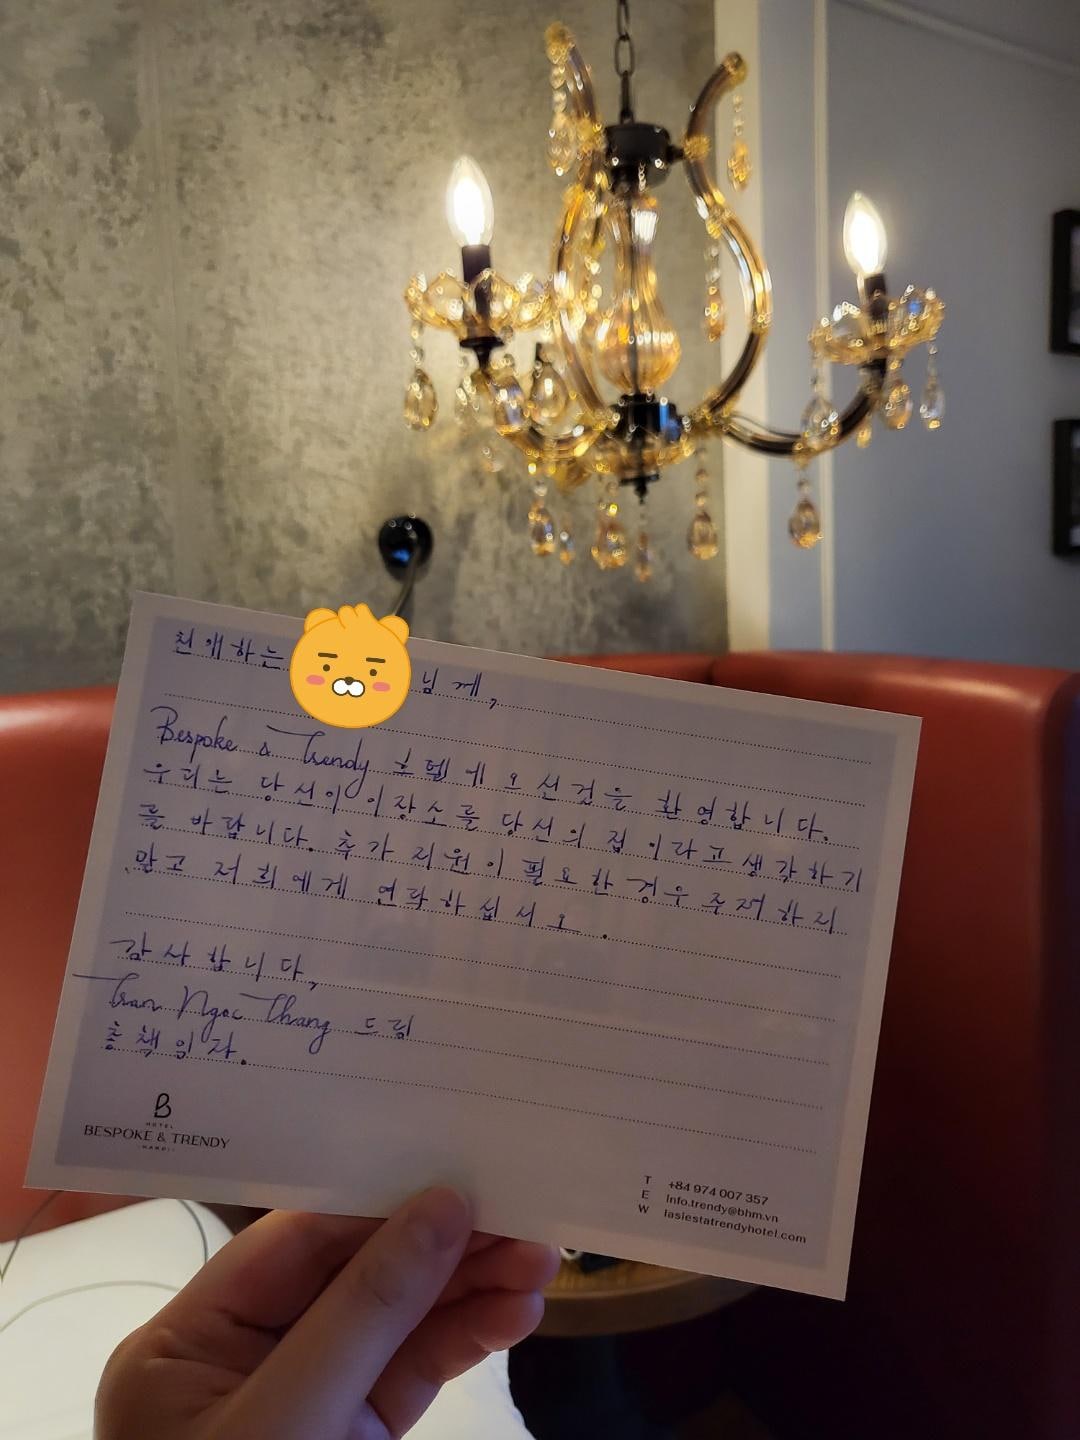 친애하는 님께,
Bespoke & Trendy 호텔에 오신것을 환영합니다.
우리는 당신이 이장소를 당신의 집 이라고 생각하기
를 바랍니다. 추가 지원이 필요한 경우 주저하지
말고 저희에게 연락하십시오.
감사합니다,
Tran Ngoc Thang 드림
총책임자.
B
HOTEL
BESPOKE & TRENDY
HANOI
T +84 974 007 357
E Info.trendy@bhm.vn
W lasiestatrendyhotel.com